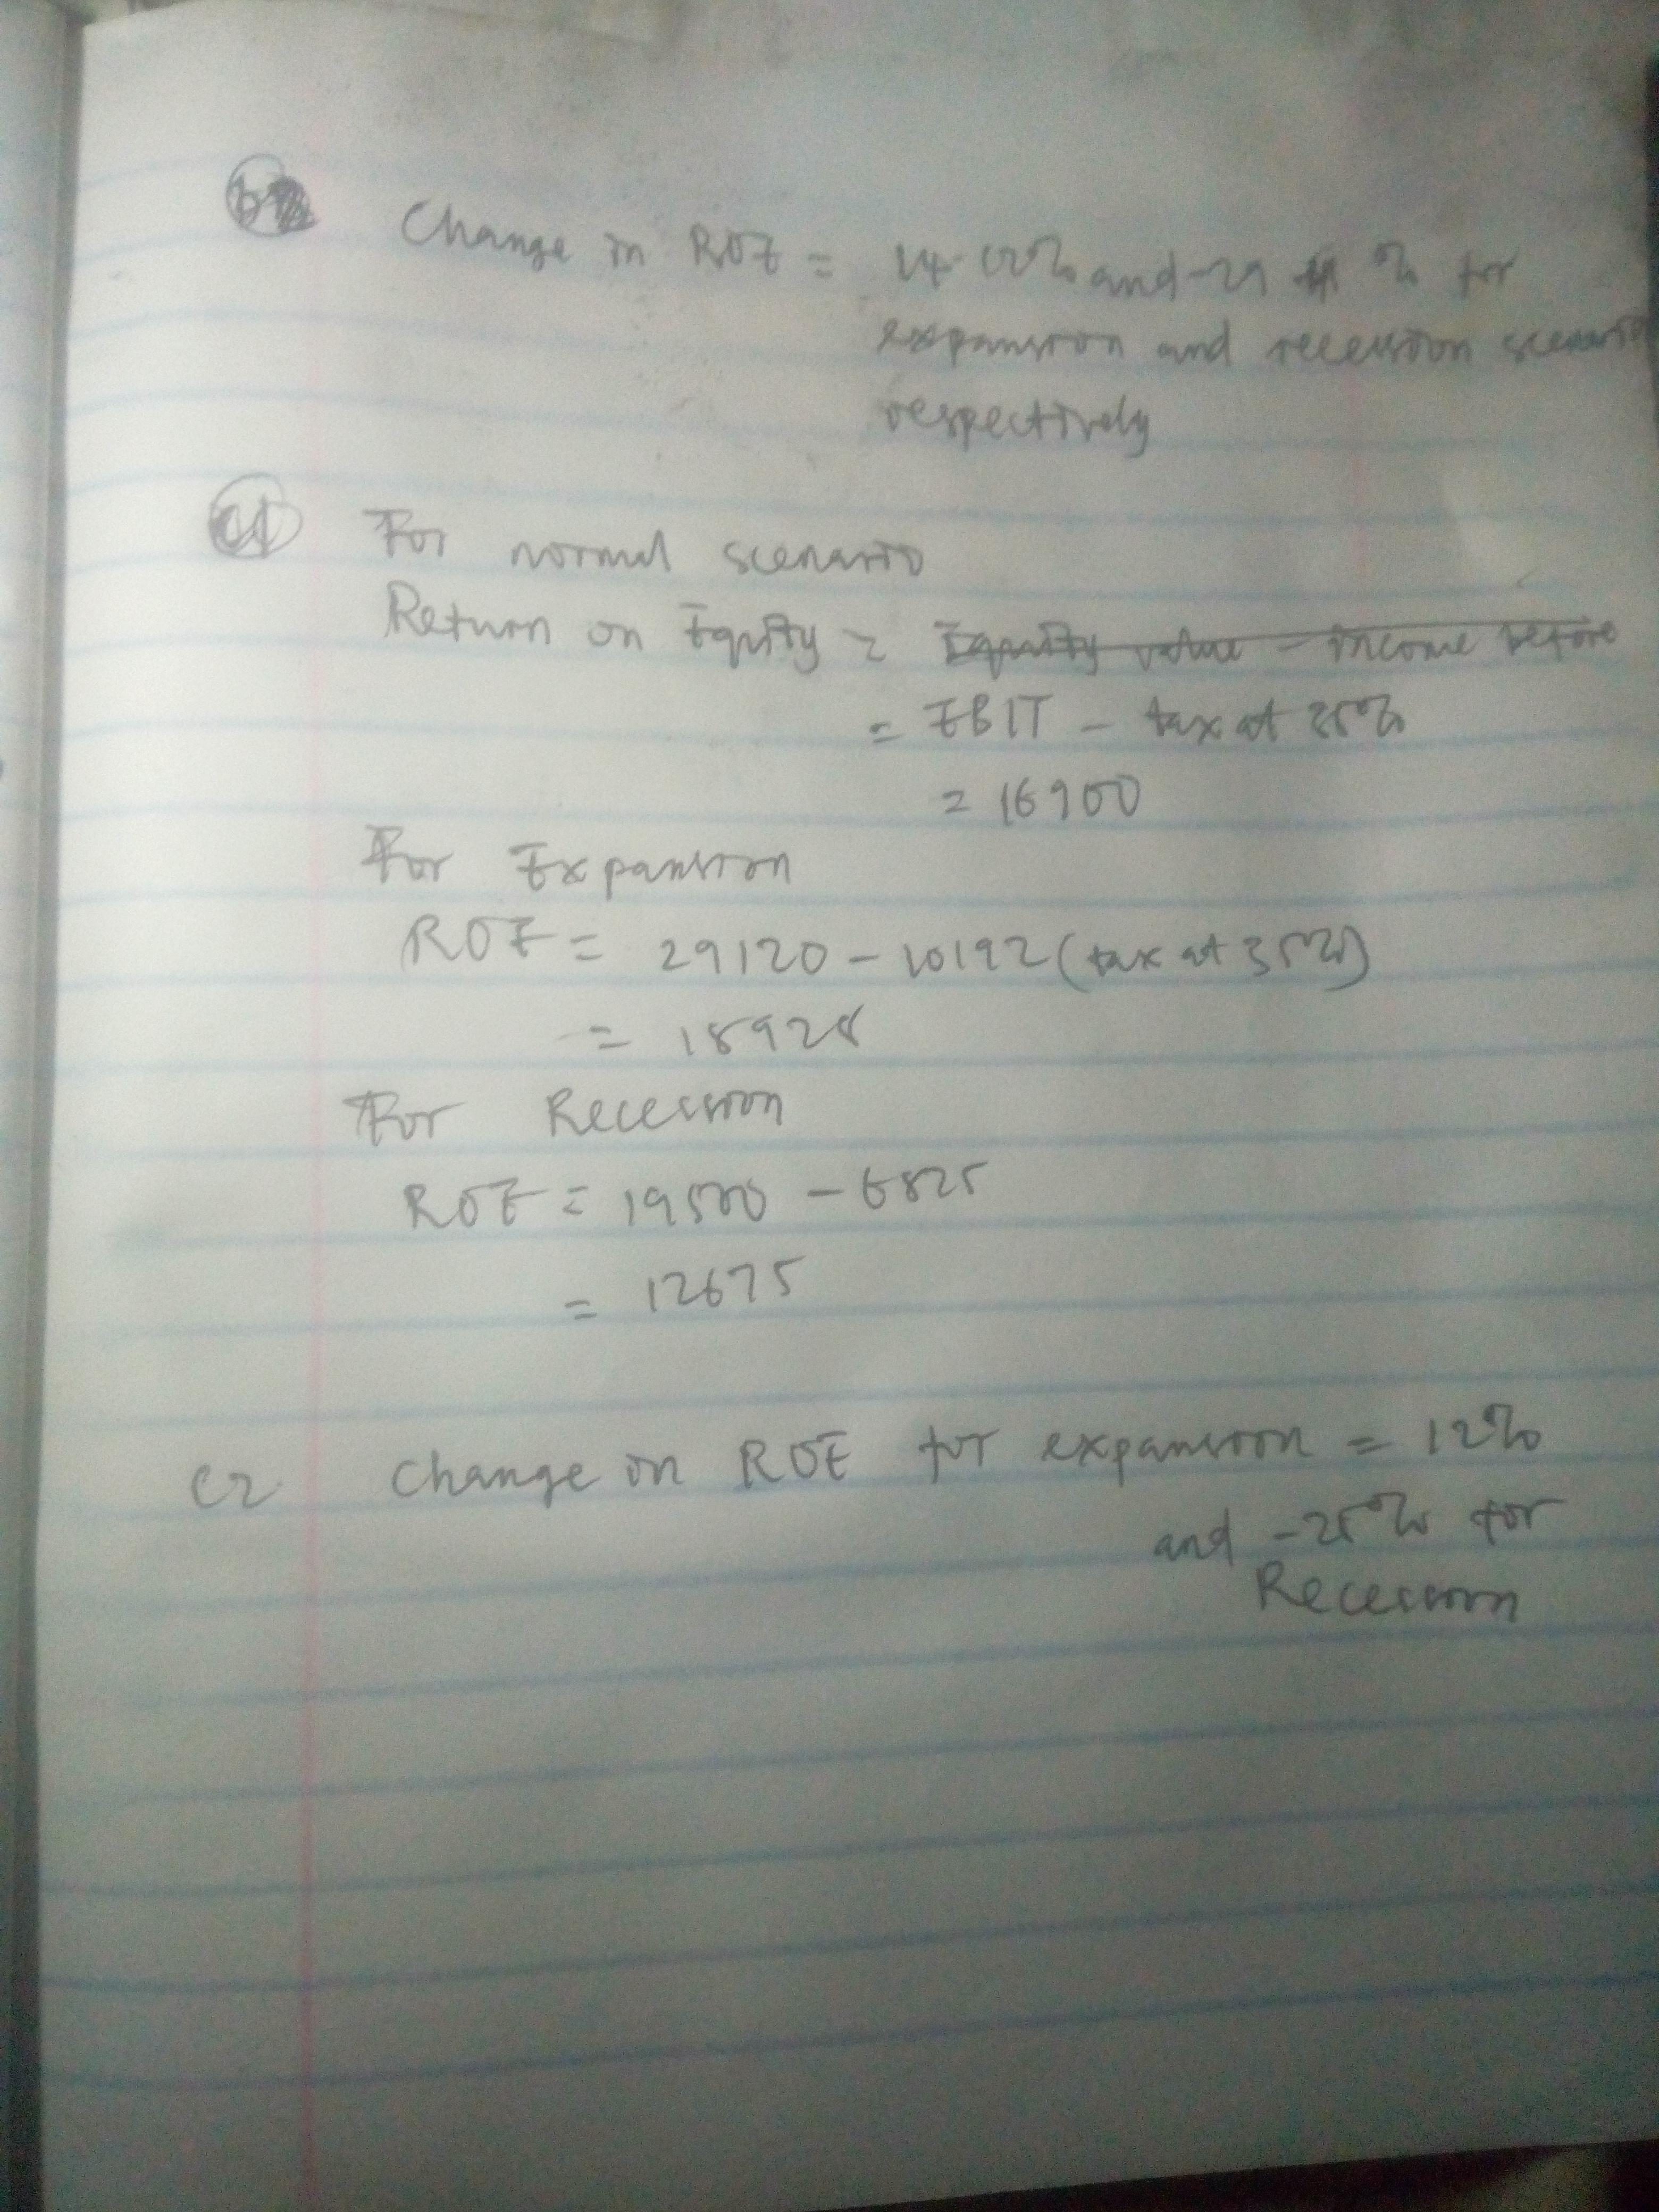 b2 Change in ROE = 14.12% and -29 % for
expansion and recession scenario
respectively
c1 For normal scenario
Return on Equity = Equity value - income before
= EBIT - tax at 35%
= 16900
For Expansion
ROE = 29120 - 10192 (tax at 35%)
= 18928
For Recession
ROE = 19500 - 6825
= 12675
c2 Change on ROE for expansion = 12%
and -25% for
Recession